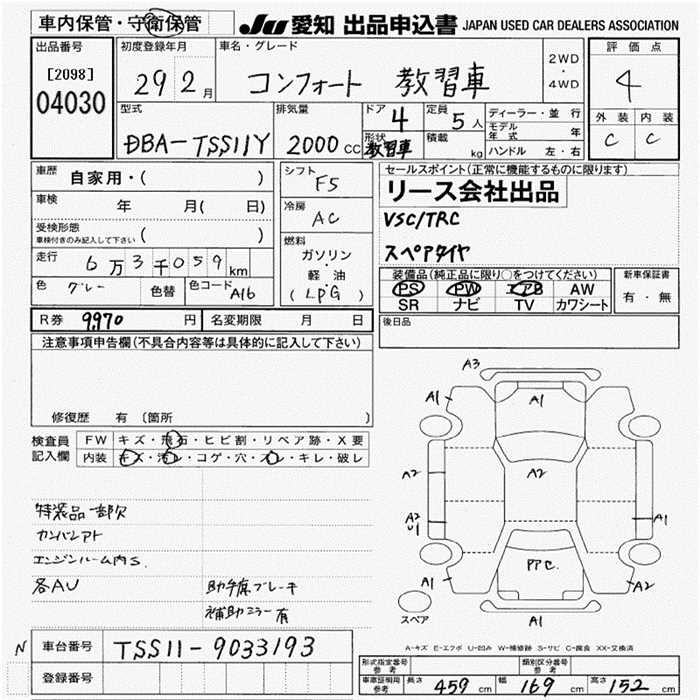 車内保管・守衛保管
JU 愛知 出品申込書 JAPAN USED CAR DEALERS ASSOCIATION
出品番号
[2098]
04030
初度登録年月
29 2 月
車名・グレード
コンフォート 教習車
2WD
・
4WD
評価点
4
外装 内装
C C
型式
DBA-TSS11Y
排気量
2000 CC
ドア
4
形状
教習車
定員
5 人
積載
kg
ディーラー・並行
モデル年式 年
ハンドル 左・右
車歴 自家用・( )
車検 年 月( 日)
受検形態
車検付きのみ記入して下さい ( )
走行 6万3千059 km
色 グレー 色替 色コード A16
シフト
F5
冷房
AC
燃料
ガソリン
・
軽油
(LPG)
セールスポイント(正常に機能するものに限ります)
リース会社出品
VSC/TRC
スペアタイヤ
装備品(純正品に限り○をつけてください)
PS PW エアB AW
SR ナビ TV カワシート
新車保証書
有・無
R券 9,970 円 名変期限 月 日
後日品
注意事項申告欄(不具合内容等は具体的に記入して下さい)
修復歴 有 〔箇所 〕
検査員
記入欄
FW キズ・飛石・ヒビ割・リペア跡・X要
内装 キズ・汚レ・コゲ・穴・スレ・キレ・破レ
特装品一部欠
カンバンアト
エンジンルーム内S.
各AU
助手席ブレーキ
補助ミラー有
A3
A1
A1
A2
A2
A2
U1
A1
PPC
A1
A2
A1
スペア
A-キズ E-エクボ U-凹み W-補修跡 S-サビ C-腐食 XX-交換済
N 車台番号 TSS11-9033193
登録番号
形式指定番号
参考
類別区分番号
参考
車庫証明用
参考
長さ 459 cm 幅 169 cm 高さ 152 cm